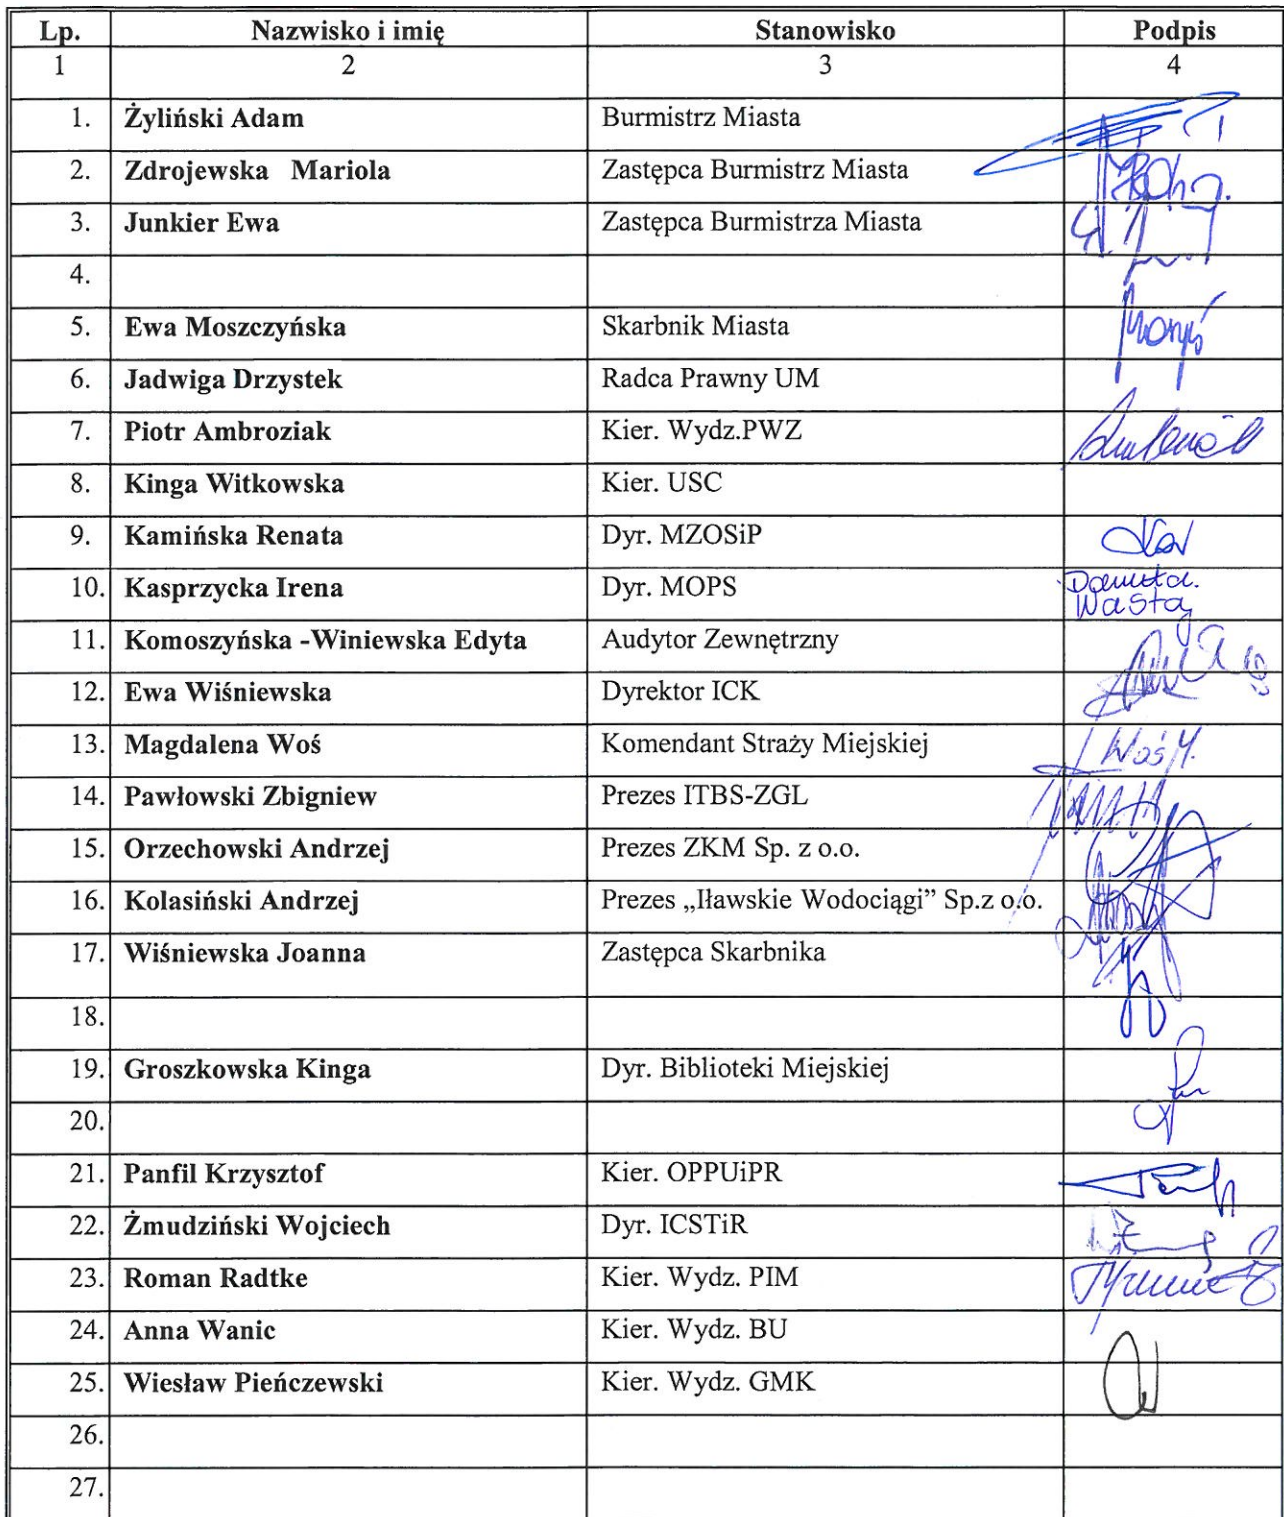 Lp. Nazwisko i imię Stanowisko Podpis
1 2 3 4
1. Żyliński Adam Burmistrz Miasta
2. Zdrojewska Mariola Zastępca Burmistrz Miasta
3. Junkier Ewa Zastępca Burmistrza Miasta
4.
5. Ewa Moszczyńska Skarbnik Miasta
6. Jadwiga Drzystek Radca Prawny UM
7. Piotr Ambroziak Kier. Wydz.PWZ
8. Kinga Witkowska Kier. USC
9. Kamińska Renata Dyr. MZOSiP
10. Kasprzycka Irena Dyr. MOPS Danuta
11. Komoszyńska -Winiewska Edyta Audytor Zewnętrzny
12. Ewa Wiśniewska Dyrektor ICK
13. Magdalena Woś Komendant Straży Miejskiej Woś M.
14. Pawłowski Zbigniew Prezes ITBS-ZGL
15. Orzechowski Andrzej Prezes ZKM Sp. z o.o.
16. Kolasiński Andrzej Prezes „Iławskie Wodociągi” Sp.z o.o.
17. Wiśniewska Joanna Zastępca Skarbnika
18.
19. Groszkowska Kinga Dyr. Biblioteki Miejskiej
20.
21. Panfil Krzysztof Kier. OPPUiPR
22. Żmudziński Wojciech Dyr. ICSTiR
23. Roman Radtke Kier. Wydz. PIM
24. Anna Wanic Kier. Wydz. BU
25. Wiesław Pieńczewski Kier. Wydz. GMK
26.
27.